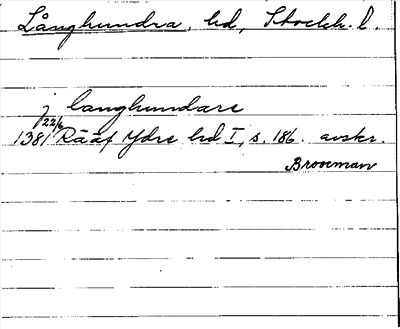 Långhundra, hd, Stockh. l.
j langhundare
1381 22/6 Rääf Ydre hd I, s. 186. avskr.
Brooman